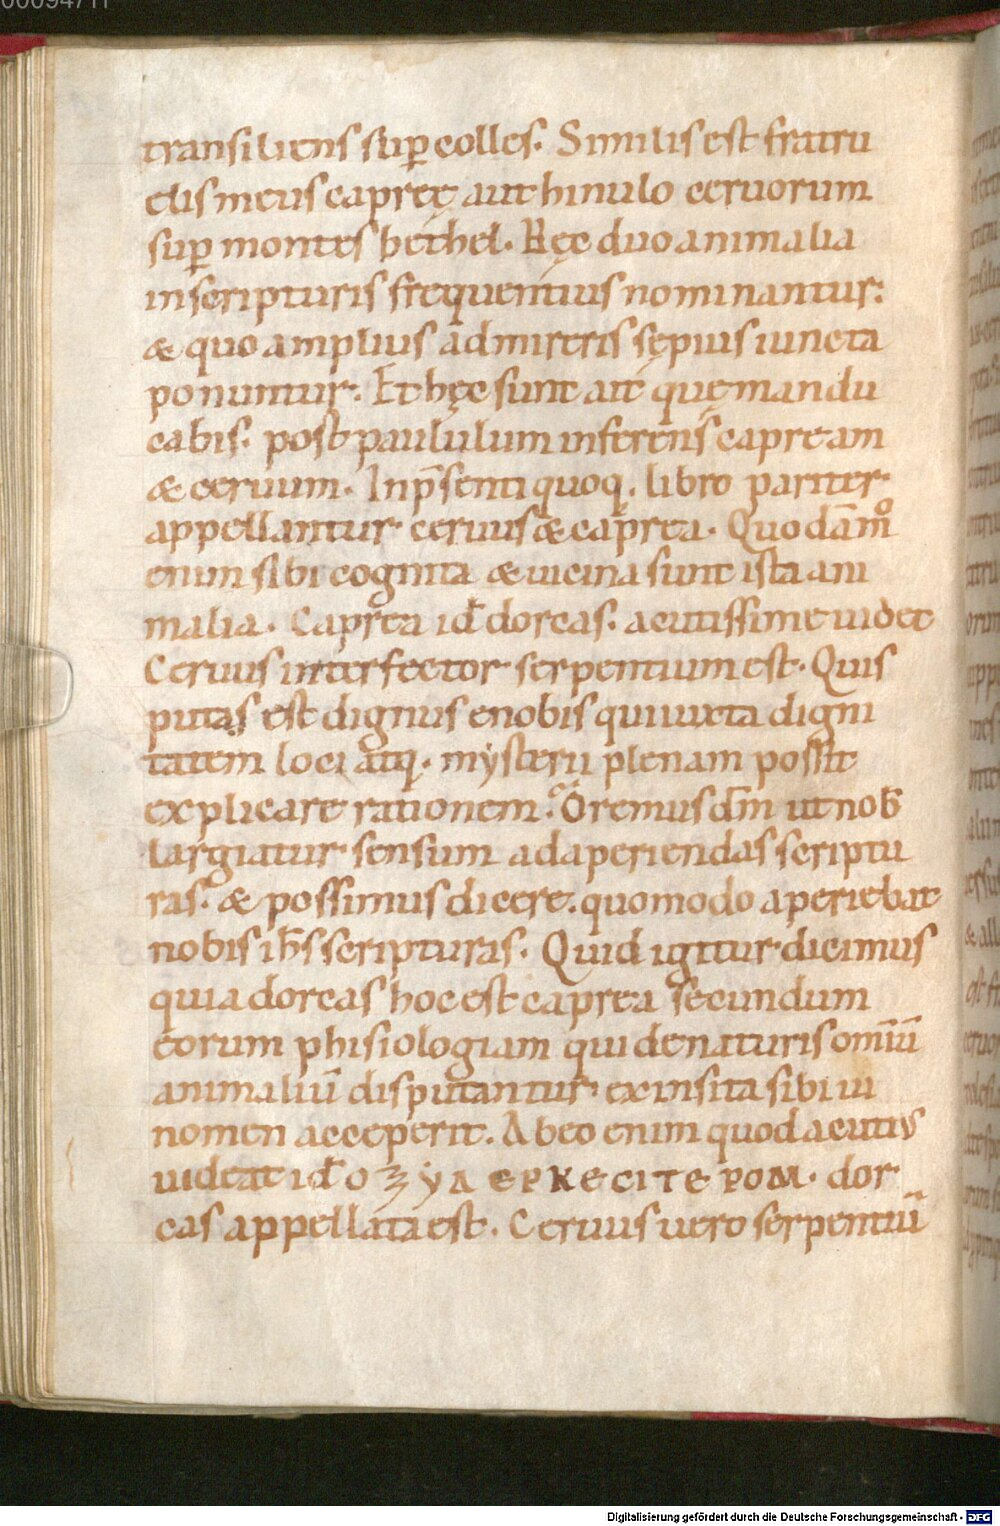 transiliens sup̱ colles. Similis est fratru
elis meus capreę aut hinulo ceruorum
sup̱ montes bethel. Hęc duo animalia
in scripturis frequentius nominantur:
& quo amplius admireris sępius iuncta
ponuntur. Et hęc sunt ait quę mandu
cabis. post paululum inferens capream
& ceruum. In p̄senti quoq. libro pariter
appellantur ceruus & caprea. Quodāmͦ
enim sibi cognita & uicina sunt ista ani
malia. Caprea id̄ dorcas. acutissime uidet
Ceruus interfector serpentium est. Quis
putas est dignus e nobis qui iuxta digni
tatem loci atq. mysterii plenam possit
explicare rationem. Oremus dm̄ ut nob̄
largiatur sensum ad aperiendas scriptu
ras. & possimus dicere. quomodo aperiebat
nobis ih̄s scripturas. Quid igitur dicimus
quia dorcas hoc est caprea secundum
eorum phisiologiam qui de naturis omīū
animaliū disputantur ex insita sibi ui
nomen acceperit. Ab eo enim quod acutiꝰ
uideat id̄ οζyΔ ερκεcιτεροΜ. dor
cas appellata est. Ceruus uero serpentiū
Digitalisierung gefördert durch die Deutsche Forschungsgemeinschaft - DFG